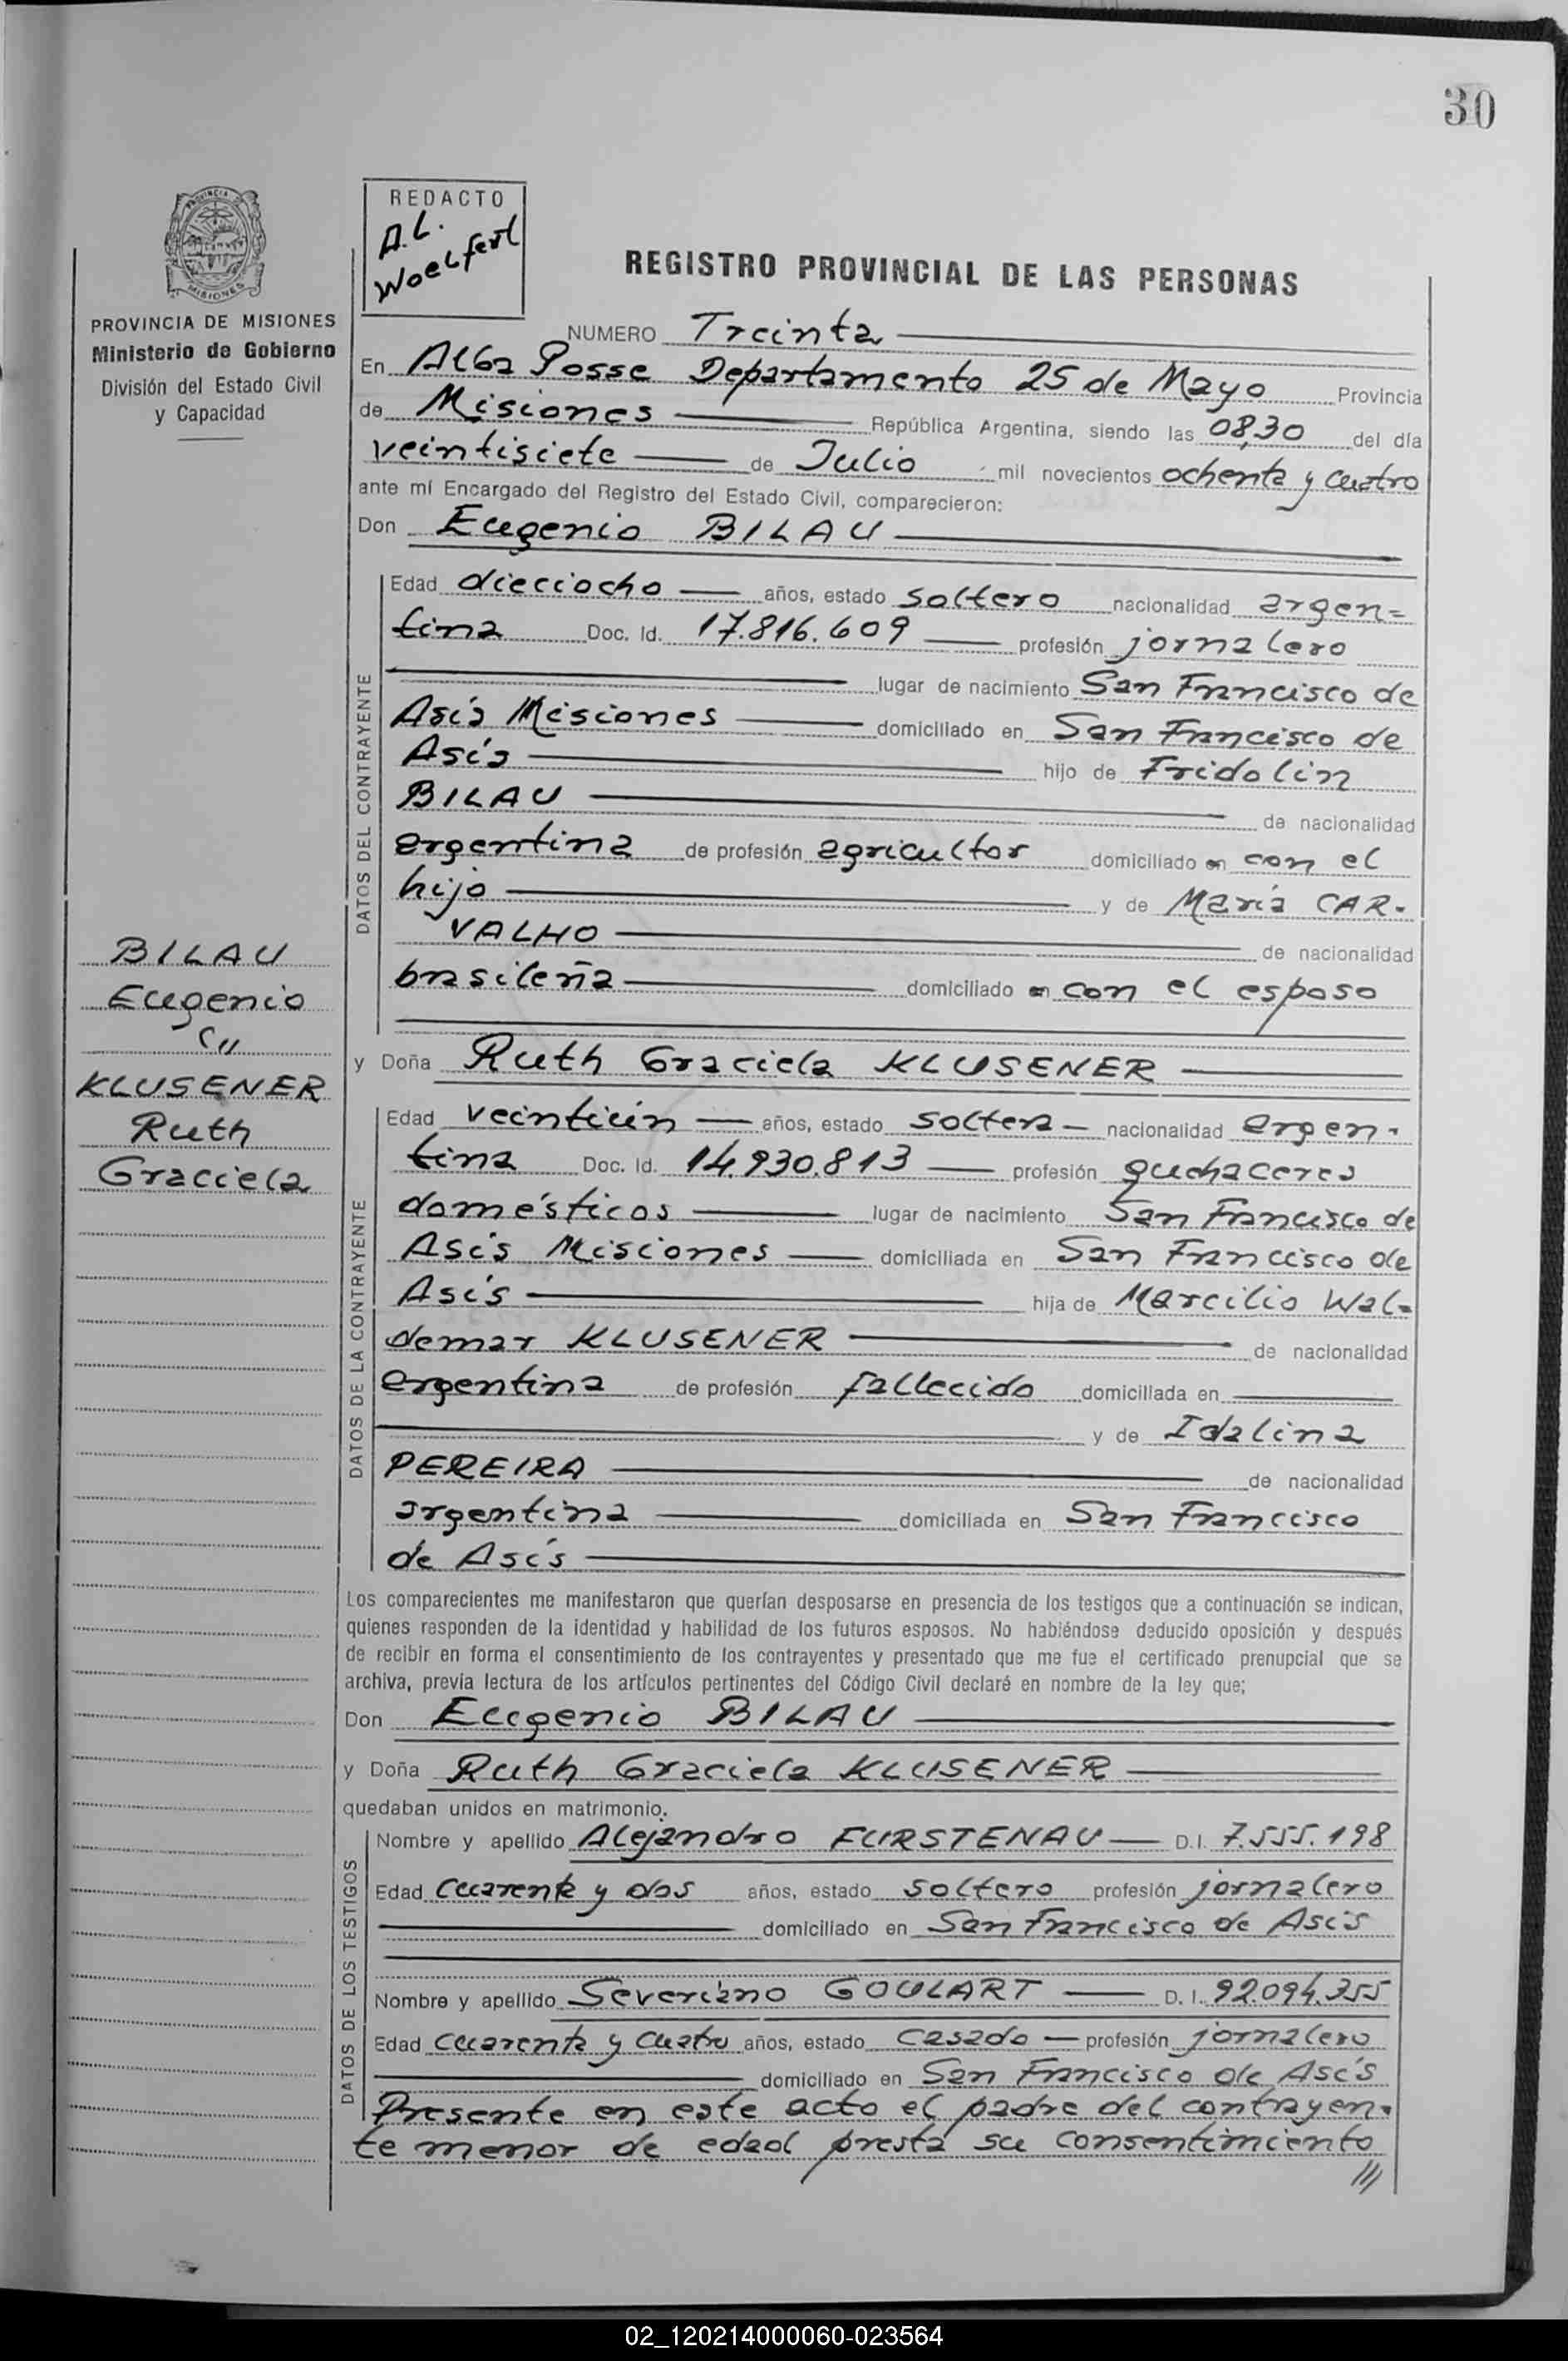 30
PROVINCIA DE
MISIONES
PROVINCIA DE MISIONES
Ministerio de Gobierno
División del Estado Civil
y Capacidad
REDACTO
A.L.
Woelfert
REGISTRO PROVINCIAL DE LAS PERSONAS
NUMERO Treinta
En Alba Posse Departamento 25 de Mayo Provincia
de Misiones República Argentina, siendo las 08,30 del día
veintisiete de Julio mil novecientos ochenta y cuatro
ante mí Encargado del Registro del Estado Civil, comparecieron:
Don Eugenio BILAU
DATOS DEL CONTRAYENTE
Edad dieciocho años, estado soltero nacionalidad argen=
tina Doc. Id. 17.816.609 profesión jornalero
lugar de nacimiento San Francisco de
Asís Misiones domiciliado en San Francisco de
Asís hijo de Fridolin
BILAU de nacionalidad
argentina de profesión agricultor domiciliado en con el
hijo y de María CAR-
VALHO de nacionalidad
brasileña domiciliado en con el esposo
BILAU
Eugenio
c//
KLUSENER
Ruth
Graciela
y Doña Ruth Graciela KLUSENER
DATOS DE LA CONTRAYENTE
Edad veintiún años, estado soltera nacionalidad argen-
tina Doc. Id. 14.930.813 profesión quehaceres
domésticos lugar de nacimiento San Francisco de
Asís Misiones domiciliada en San Francisco de
Asís hija de Marcilio Wal=
demar KLUSENER de nacionalidad
argentina de profesión fallecido domiciliada en
y de Idalina
PEREIRA de nacionalidad
argentina domiciliada en San Francisco
de Asís
Los comparecientes me manifestaron que querían desposarse en presencia de los testigos que a continuación se indican,
quienes responden de la identidad y habilidad de los futuros esposos. No habiéndose deducido oposición y después
de recibir en forma el consentimiento de los contrayentes y presentado que me fue el certificado prenupcial que se
archiva, previa lectura de los artículos pertinentes del Código Civil declaré en nombre de la ley que;
Don Eugenio BILAU
y Doña Ruth Graciela KLUSENER
quedaban unidos en matrimonio.
DATOS DE LOS TESTIGOS
Nombre y apellido Alejandro FURSTENAU D.I. 7.555.198
Edad cuarenta y dos años, estado soltero profesión jornalero
domiciliado en San Francisco de Asís
Nombre y apellido Severiano GOULART D.I. 92.094.355
Edad cuarenta y cuatro años, estado casado profesión jornalero
domiciliado en San Francisco de Asís
Presente en este acto el padre del contrayen-
te menor de edad presta su consentimiento
///
02_120214000060-023564